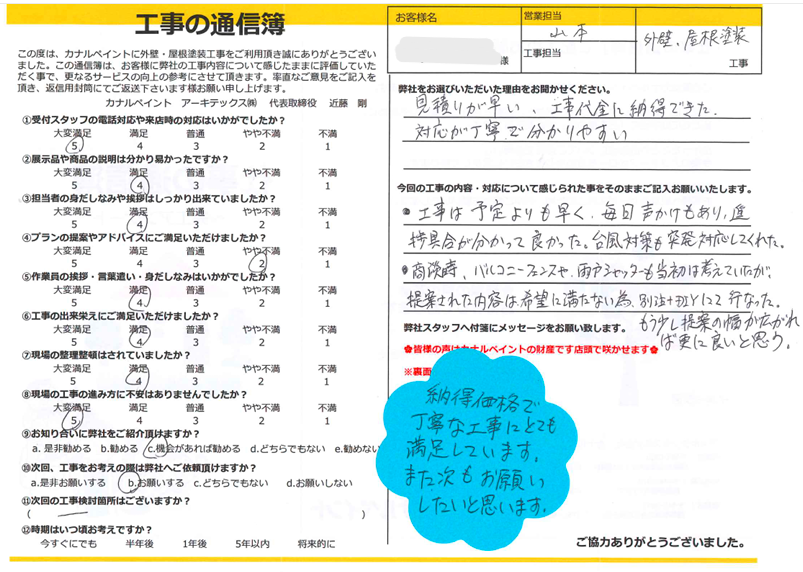 工事の通信簿
この度は、カナルペイントに外壁・屋根塗装工事をご利用頂き誠にありがとうござい
ました。この通信簿は、お客様に弊社の工事内容について感じたままに評価していた
だく事で、更なるサービスの向上の参考にさせて頂きます。率直なご意見をご記入を
頂き、返信用封筒にてご返送下さいます様お願い申し上げます。
カナルペイント アーキテックス㈱ 代表取締役 近藤 剛
①受付スタッフの電話対応や来店時の対応はいかがでしたか？
大変満足 満足 普通 やや不満 不満
5 4 3 2 1
②展示品や商品の説明は分かり易かったですか？
大変満足 満足 普通 やや不満 不満
5 4 3 2 1
③担当者の身だしなみや挨拶はしっかり出来ていましたか？
大変満足 満足 普通 やや不満 不満
5 4 3 2 1
④プランの提案やアドバイスにご満足いただけましたか？
大変満足 満足 普通 やや不満 不満
5 4 3 2 1
⑤作業員の挨拶・言葉遣い・身だしなみはいかがでしたか？
大変満足 満足 普通 やや不満 不満
5 4 3 2 1
⑥工事の出来栄えにご満足いただけましたか？
大変満足 満足 普通 やや不満 不満
5 4 3 2 1
⑦現場の整理整頓はされていましたか？
大変満足 満足 普通 やや不満 不満
5 4 3 2 1
⑧現場の工事の進み方に不安はありませんでしたか？
大変満足 満足 普通 やや不満 不満
5 4 3 2 1
⑨お知り合いに弊社をご紹介頂けますか？
a. 是非勧める b.勧める c.機会があれば勧める d.どちらでもない e.勧めない
⑩次回、工事をお考えの際は弊社へご依頼頂けますか？
a.是非お願いする b.お願いする c.どちらでもない d.お願いしない
⑪次回の工事検討箇所はございますか？
( ― )
⑫時期はいつ頃お考えですか？
今すぐにでも 半年後 1年後 5年以内 将来的に
お客様名
様
営業担当
山本
工事担当
外壁、屋根塗装
工事
弊社をお選びいただいた理由をお聞かせください。
見積りが早い、工事代金に納得できた.
対応が丁寧で分かりやすい
今回の工事の内容・対応について感じられた事をそのままご記入お願いいたします。
工事は予定よりも早く、毎日声かけもあり、進
捗具合が分かって良かった。台風対策も突発対応してくれた。
商談時、バルコニーフェンスや、雨戸シャッターも当初は考えていたが、
提案された内容は希望に満たない為、別注にて行なった。
もう少し提案の幅が広がれ
ば更に良いと思う。
弊社スタッフへ付箋にメッセージをお願い致します。
✿皆様の声はカナルペイントの財産です店頭で咲かせます✿
※裏面
納得価格で
丁寧な工事にとても
満足しています。
また次もお願い
したいと思います。
ご協力ありがとうございました。